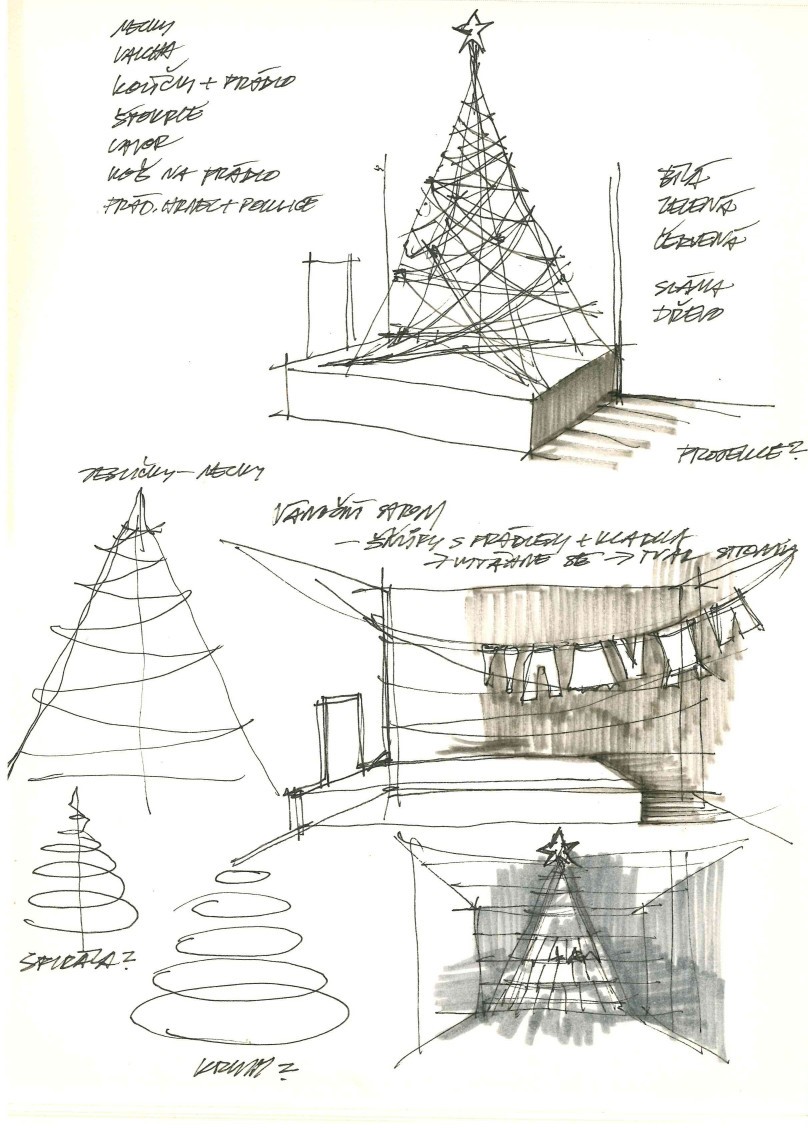 NECKY
VALCHA
KOLÍČKY + PRÁDLO
ŠTOKRLE
LAVOR
KOŠ NA PRÁDLO
PRÁD. HRNEC + POKLICE
BÍLÁ
ZELENÁ
ČERVENÁ
SLÁMA
DŘEVO
PROJEKCE?
NECKY
VÁNOČNÍ STROM
– ŠŇŮRY S PRÁDLEM + KLADKA
→ VYTÁHNE SE → TVAR STROMKU
SPIRÁLA?
KRUHY?